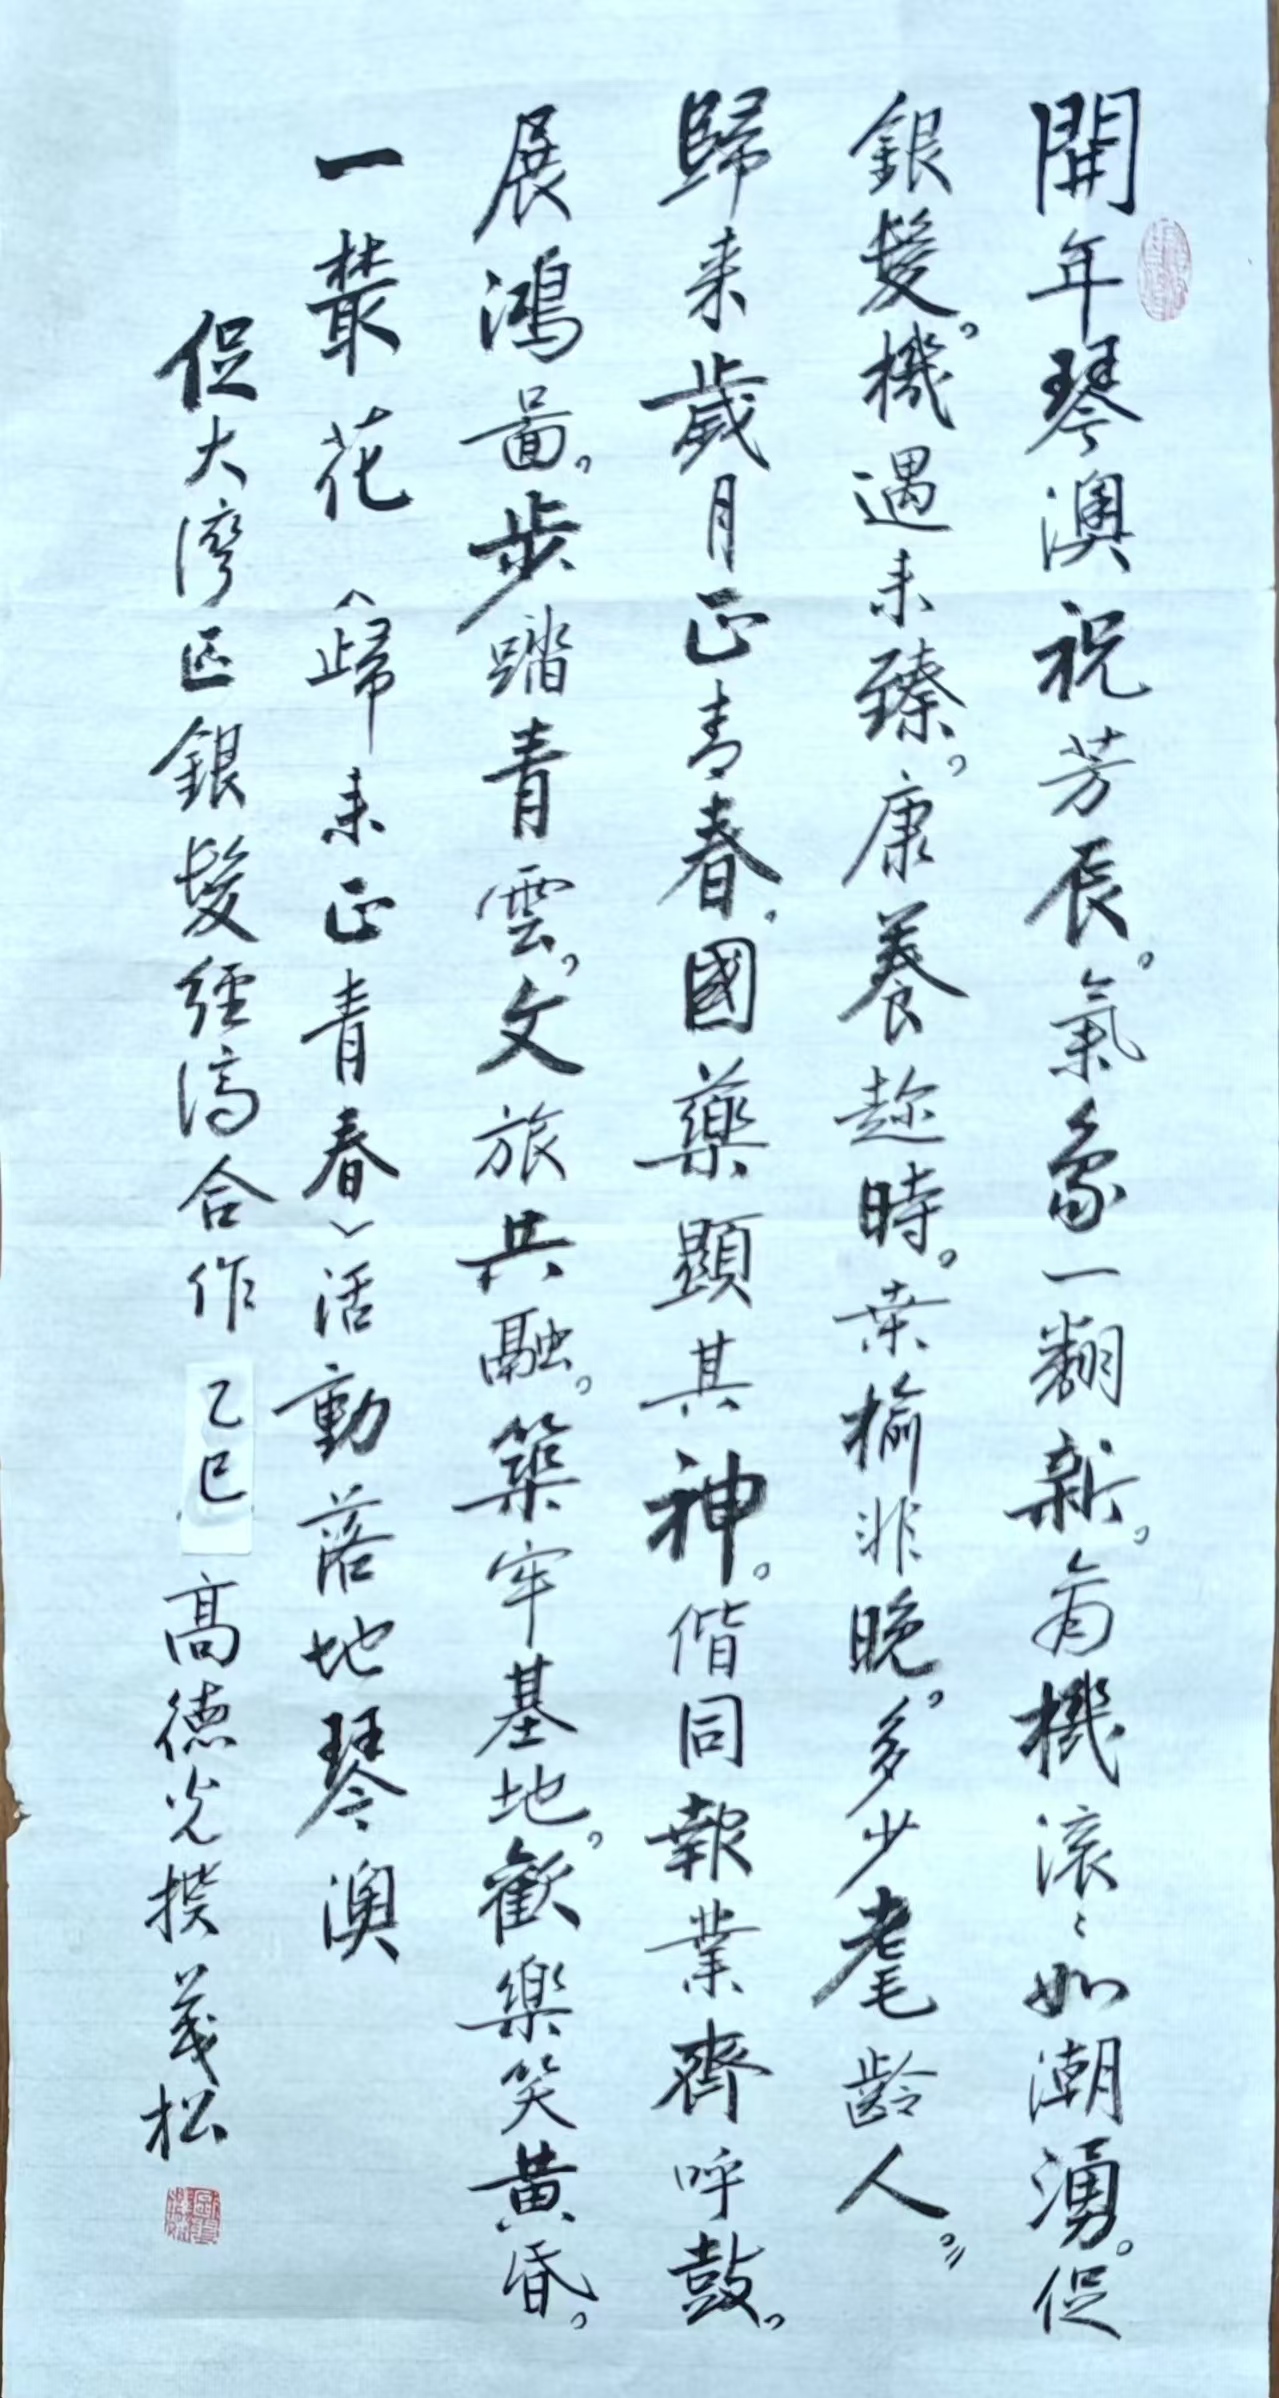 開年琴澳祝芳辰。氣象一翻新。有機滾〻如潮湧。促
銀髮。機遇來臻。康養趁時。桑榆非晚。多少耄齡人。〃
歸来歲月正青春。國藥顯其神。偕同報業齊呼鼓。
展鴻啚。步踏青雲。文旅共融。築牢基地。歡樂笑黃昏。
一叢花《歸来正青春》活動落地琴澳
促大灣區銀髮經濟合作 乙巳 高德光撰 義松